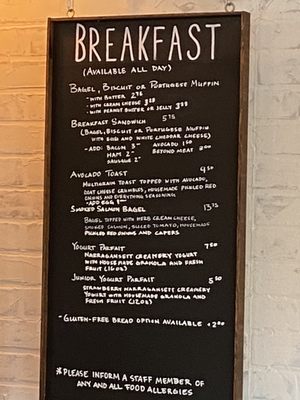 BREAKFAST
(AVAILABLE ALL DAY)
BAGEL, BISCUIT OR PORTUGUESE MUFFIN
- WITH BUTTER 2.75
- WITH CREAM CHEESE 3.25
- WITH PEANUT BUTTER OR JELLY 3.25
BREAKFAST SANDWICH 5.75
(BAGEL, BISCUIT OR PORTUGUESE MUFFIN
WITH EGG AND WHITE CHEDDAR CHEESE)
- ADD: BACON AVOCADO 1.50
HAM 2.00 BEYOND MEAT 3.00
SAUSAGE 2.00
AVOCADO TOAST 9.50
MULTIGRAIN TOAST TOPPED WITH AVOCADO,
GOAT CHEESE CRUMBLES, HOUSEMADE PICKLED RED
ONIONS AND EVERYTHING SEASONING
- ADD EGG
SMOKED SALMON BAGEL 13.75
BAGEL TOPPED WITH HERB CREAM CHEESE,
SMOKED SALMON, SLICED TOMATO, HOUSEMADE
PICKLED RED ONIONS AND CAPERS
YOGURT PARFAIT 7.50
NARRAGANSETT CREAMERY YOGURT
WITH HOUSEMADE GRANOLA AND FRESH
FRUIT (16OZ)
JUNIOR YOGURT PARFAIT 5.50
STRAWBERRY NARRAGANSETT CREAMERY
YOGURT WITH HOUSEMADE GRANOLA AND
FRESH FRUIT (12OZ)
- GLUTEN-FREE BREAD OPTION AVAILABLE +2.00
*PLEASE INFORM A STAFF MEMBER OF
ANY AND ALL FOOD ALLERGIES